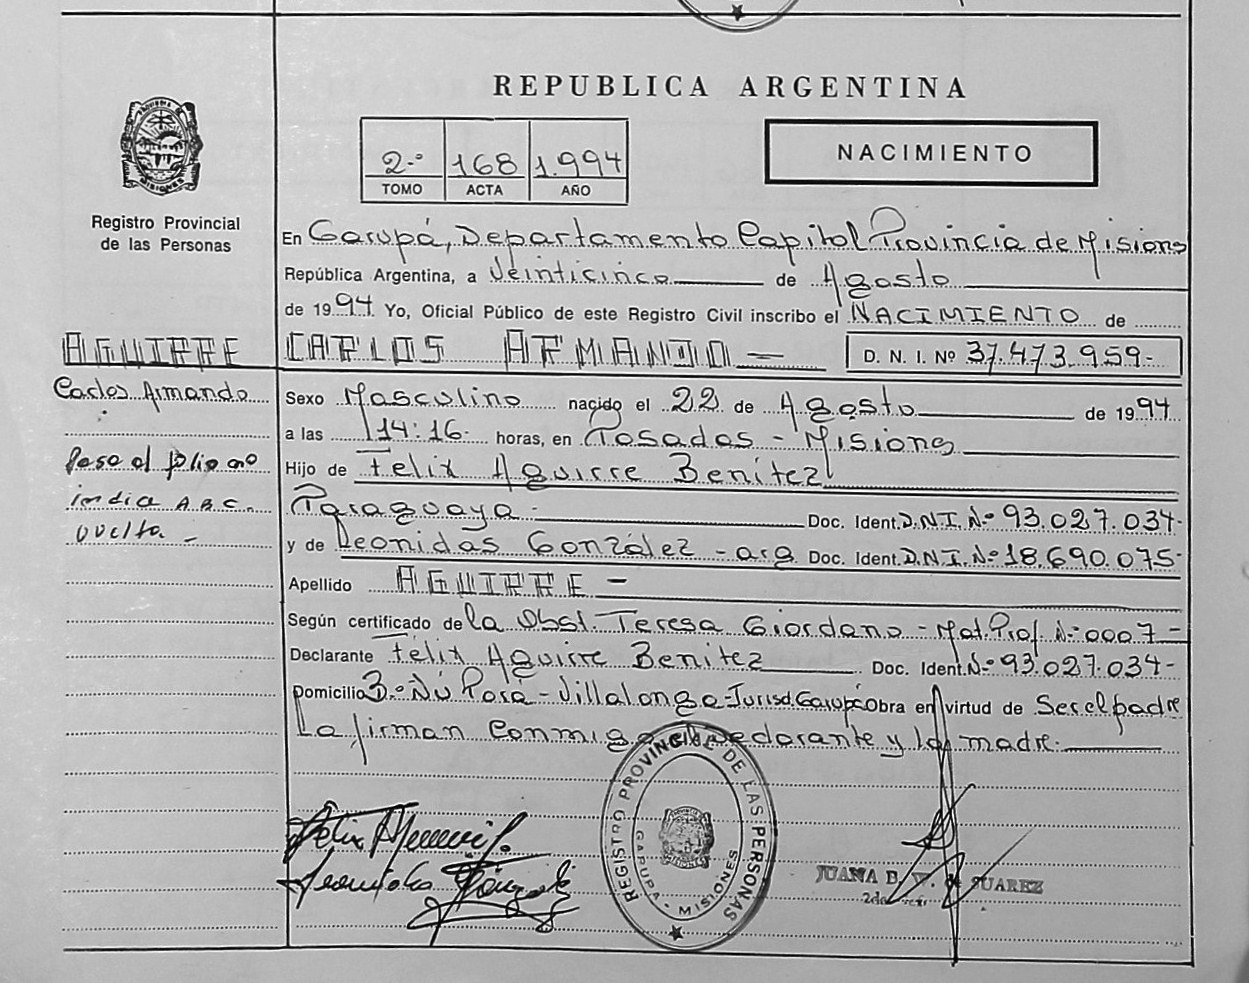 REPUBLICA ARGENTINA
MISIONES
Registro Provincial
de las Personas
2º 168 1.994
TOMO ACTA AÑO
NACIMIENTO
En Garupá, Departamento Capital Provincia de Misiones
República Argentina, a Veinticinco de Agosto
de 1994 Yo, Oficial Público de este Registro Civil inscribo el NACIMIENTO de
AGUIRRE CARLOS ARMANDO — D. N. I. Nº 37.473.959-
Carlos Armando
Sexo Masculino nacido el 22 de Agosto de 1994
a las 14:16 horas, en Posadas - Misiones
Pasa al folio
indice A B C.
vuelta -
Hijo de Felix Aguirre Benitez
Paraguaya - Doc. Ident. D.N.I. Nº 93.027.034-
y de Leonidas González - arg Doc. Ident. D.N.I. Nº 18.690.075-
Apellido AGUIRRE -
Según certificado de la Obst. Teresa Giordano - Mat. Prof. Nº 0007 -
Declarante Félix Aguirre Benitez Doc. Ident. Nº 93.027.034-
Domicilio Bº Ñú Porá - Villalonga - Jurisd. Garupá Obra en virtud de Ser el padre
La firman Conmigo el declarante y la madre.
REGISTRO PROVINCIAL DE LAS PERSONAS
GARUPA - MISIONES
JUANA B. V. de SUAREZ